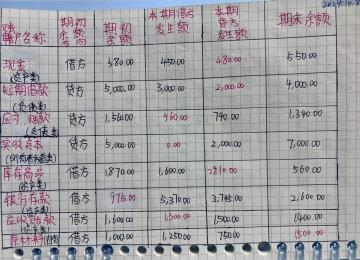 2024.10.
账户名称 期初余额方向 期初余额 本期借方发生额 本期贷方发生额 期末余额
现金 借方 580 450.00 480.00 550.00
(资产类)
短期借款 贷方 5,000.00 3,000.00 2,000.00 4,000.00
(负债类)
应付账款 贷方 1,560.00 960.00 740.00 1,340.00
(负债类)
实收资本 贷方 5,000.00 0.00 2,000.00 7,000.00
(所有者权益类)
库存商品 借方 1,870.00 1,600.00 2910.00 560.00
(资产类)
银行存款 借方 975.00 5,370.00 3,745.00 2,600.00
(资产类)
应收账款 借方 1,600.00 1300.00 1500.00 1400.00
(资产类)
原材料 借方 1,000.00 1,250.00 750.00 1500.00